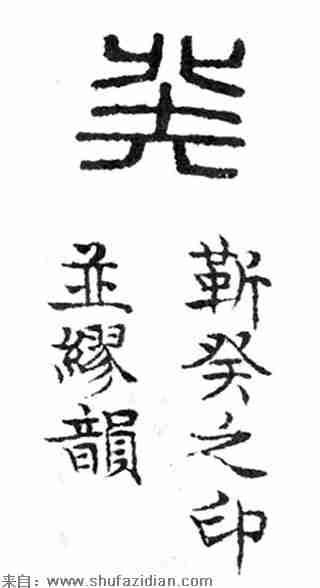 癸
靳癸之印
並繆韻
来自：www.shufazidian.com